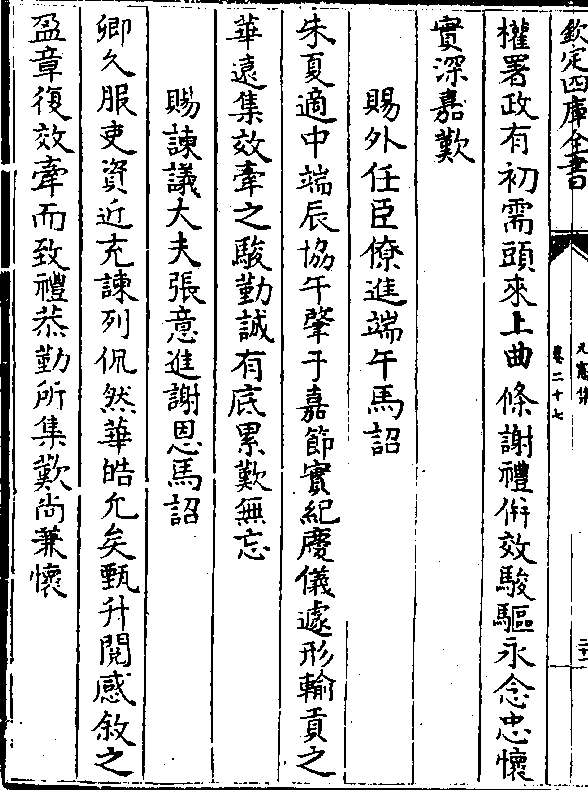 欽定四庫全書
元憲集
卷二十七
權署政有初需頭來上曲條謝禮併效駿驅永念忠懷
實深嘉歎
賜外任臣僚進端午馬詔
朱夏適中端辰協午肇于嘉節實紀慶儀遽形輸貢之
華遠集效牽之駿勤誠有底累歎無忘
賜諫議大夫張意進謝恩馬詔
卿久服吏資近充諫列侃然華皓允矣甄升閱感敘之
盈章復效牽而致禮恭勤所集歎尚兼懷